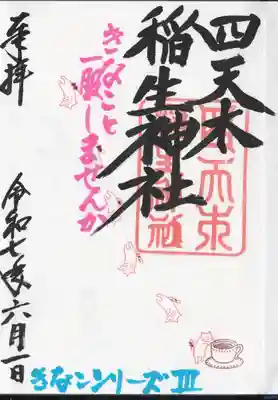 四天木
稲生神社
きなこと
一服しませんか
奉拝
令和七年六月一日
きなこシリーズⅢ